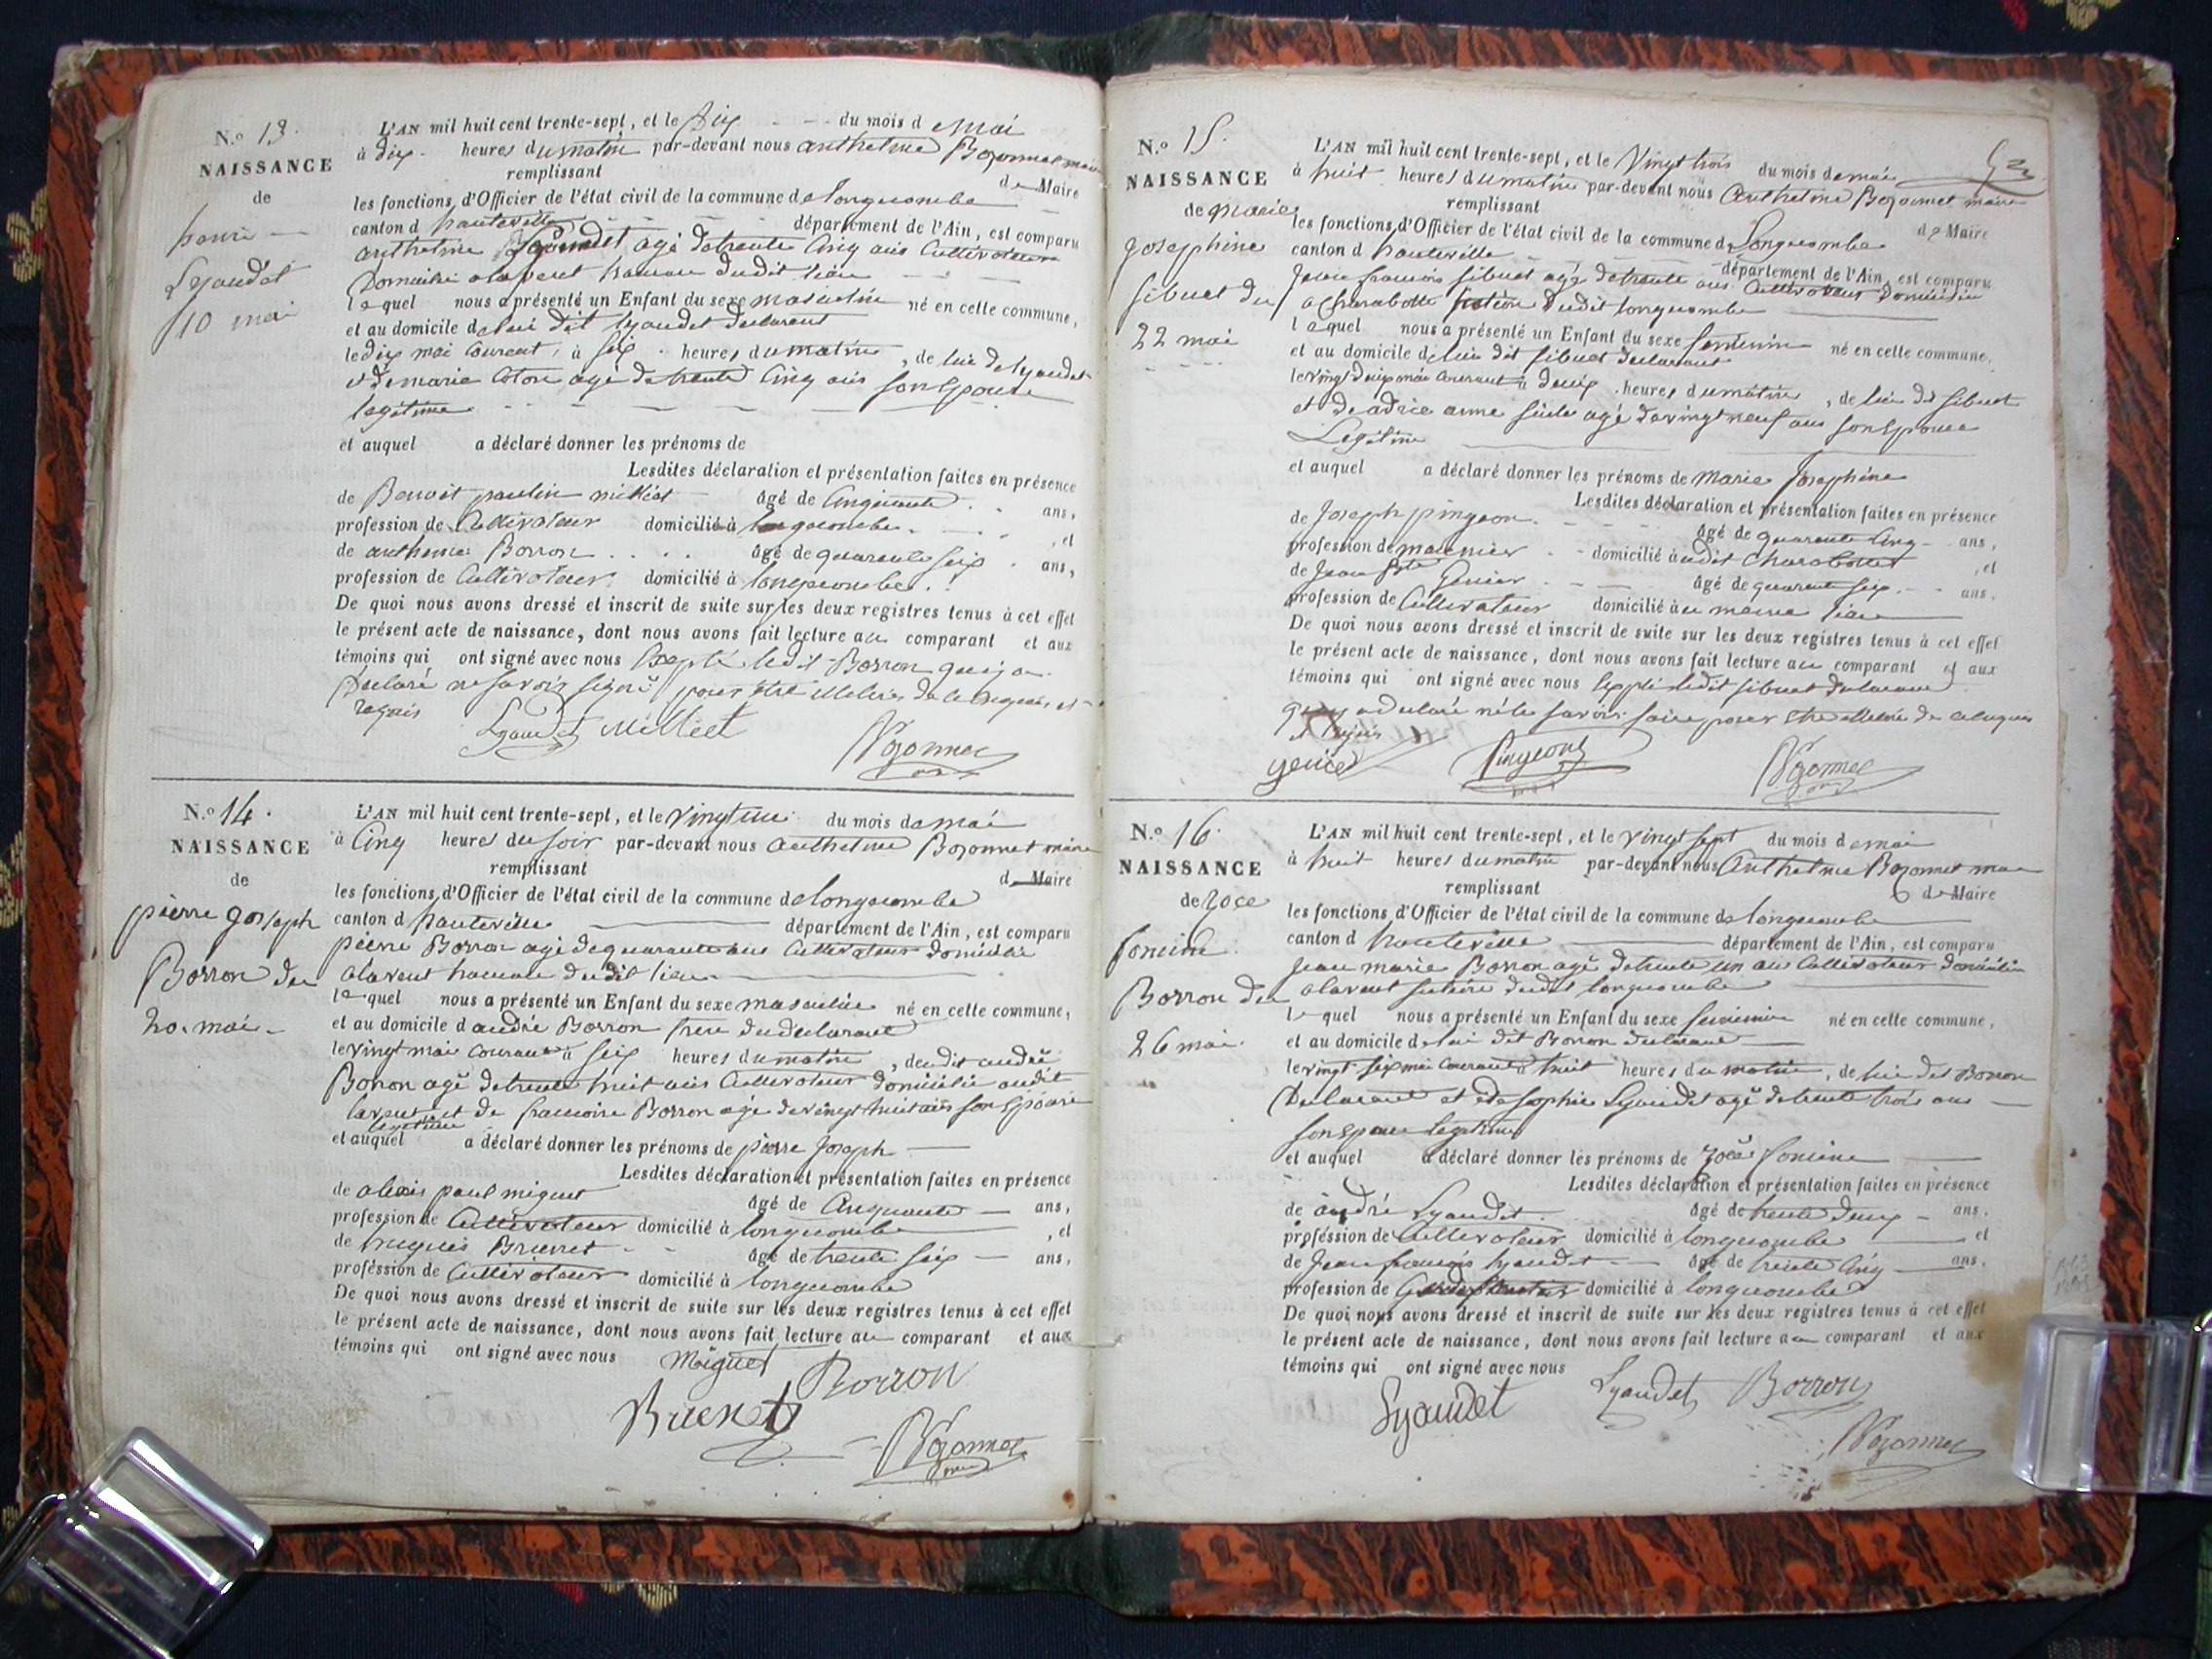 N.º 13.
NAISSANCE
de
henri
Lyaudet
10 mai
L'AN mil huit cent trente-sept, et le Dix du mois d e mai
à dix heures du matin par-devant nous anthelme Bozonnet maire
remplissant de Maire
les fonctions d'Officier de l'état civil de la commune de longecombe
canton d hauteville département de l'Ain, est comparu
anthelme Lyaudet agé de trente Cinq ans Cultivateur
Domicilié a lavent hameau dudit lieu
lequel nous a présenté un Enfant du sexe masculin né en cette commune,
et au domicile de lui dit lyaudet declarant
le dix mai courant, à six heures du matin, de lui de lyaudet
et de marie agé de trente Cinq ans son Epouse
legitime
et auquel a déclaré donner les prénoms de
Lesdites déclaration et présentation faites en présence
de Benoit paulin milliet âgé de Cinquante ans,
profession de Cultivateur domicilié à longecombe, et
de anthelme Borron âgé de quarante six ans,
profession de Cultivateur domicilié à longecombe.
De quoi nous avons dressé et inscrit de suite sur les deux registres tenus à cet effet
le présent acte de naissance, dont nous avons fait lecture au comparant et aux
témoins qui ont signé avec nous Excepté ledit Borron qui a
Declaré ne savoir signé pour être de ce enquis et
requis
Lyaudet Milliet
Bozonnet
N.º 14.
NAISSANCE
de
pierre joseph
Borron du
20 mai
L'AN mil huit cent trente-sept, et le vingt un du mois de mai
à Cinq heures du soir par-devant nous anthelme Bozonnet maire
remplissant de Maire
les fonctions d'Officier de l'état civil de la commune de longecombe
canton d hauteville département de l'Ain, est comparu
pierre Borron agé de quarante ans Cultivateur domicilié
a lavent hameau dudit lieu
lequel nous a présenté un Enfant du sexe masculin né en cette commune,
et au domicile d andré Borron frere du declarant
le vingt mai courant à six heures du matin, dudit andré
Borron agé de trente huit ans Cultivateur domicilié audit
lavent et de francoise Borron agé de vingt huit ans son Epouse
legitime
et auquel a déclaré donner les prénoms de pierre Joseph
Lesdites déclaration et présentation faites en présence
de alexis paul miguet âgé de Cinquante ans,
profession de Cultivateur domicilié à longecombe, et
de hugues Brunet âgé de trente six ans,
profession de Cultivateur domicilié à longecombe
De quoi nous avons dressé et inscrit de suite sur les deux registres tenus à cet effet
le présent acte de naissance, dont nous avons fait lecture au comparant et aux
témoins qui ont signé avec nous Miguet Borron
Brunet
Bozonnet
N.º 15.
NAISSANCE
de marie
josephine
sibuet du
22 mai
L'AN mil huit cent trente-sept, et le Vingt trois du mois de mai
à huit heures du matin par-devant nous Anthelme Bozonnet maire
remplissant de Maire
les fonctions d'Officier de l'état civil de la commune de Longecombe
canton d hauteville département de l'Ain, est comparu
Jean francois sibuet agé de trente ans Cultivateur Domicilié
a Charabotte dudit longecombe
lequel nous a présenté un Enfant du sexe feminin né en cette commune,
et au domicile de lui dit sibuet declarant
le vingt deux mai courant à deux heures du matin, de lui dit sibuet
et de anne agé de vingt neuf ans son Epouse
Legitime
et auquel a déclaré donner les prénoms de marie Josephine
Lesdites déclaration et présentation faites en présence
de Joseph pingeon âgé de quarante Cinq ans,
profession de meunier domicilié audit Charabotte, et
de Jean Bte Genier âgé de quarante six ans.
profession de Cultivateur domicilié au meme lieu
De quoi nous avons dressé et inscrit de suite sur les deux registres tenus à cet effet
le présent acte de naissance, dont nous avons fait lecture au comparant et aux
témoins qui ont signé avec nous Excepté ledit sibuet declarant
qui a declaré ne le savoir faire pour être de ce enquis
et requis
Pingeon
Bozonnet
N.º 16
NAISSANCE
de Zoee
Borron du
26 mai
L'AN mil huit cent trente-sept, et le vingt sept du mois de mai
à huit heures du matin par-devant nous Anthelme Bozonnet maire
remplissant de Maire
les fonctions d'Officier de l'état civil de la commune de longecombe
canton d hauteville département de l'Ain, est comparu
Jean marie Borron agé de trente un ans Cultivateur domicilié
a lavent dudit longecombe
lequel nous a présenté un Enfant du sexe feminin né en cette commune,
et au domicile de lui dit Borron declarant
le vingt six mai courant à huit heures du matin, de lui dit Borron
Declarant et de sophie Lyaudet agé de trente trois ans
son Epouse legitime
et auquel a déclaré donner les prénoms de Zoée
Lesdites déclaration et présentation faites en présence
de andré Lyaudet âgé de trente deux ans.
profession de Cultivateur domicilié à longecombe et
de Jean francois lyaudet âgé de trente Cinq ans.
profession de domicilié à longecombe
De quoi nous avons dressé et inscrit de suite sur les deux registres tenus à cet effet
le présent acte de naissance, dont nous avons fait lecture au comparant et aux
témoins qui ont signé avec nous
Lyaudet Lyaudet Borron
Bozonnet